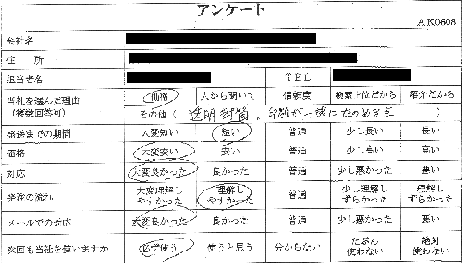 アンケート
AK0608
会社名
住 所
担当者名 TEL
当社を選んだ理由 (複数回答可) 価格 人から聞いて 信頼度 検索上位だから 紹介だから
その他( 透明封筒、印刷が一緒にたのめるを )
発送までの期間 大変短い 短い 普通 少し長い 長い
価格 大変安い 安い 普通 少し高い 高い
対応 大変良かった 良かった 普通 少し悪かった 悪い
発注の流れ 大変理解しやすかった 理解しやすかった 普通 少し理解しずらかった 理解しずらかった
メールでの対応 大変良かった 良かった 普通 少し悪かった 悪い
次回も当社を使いますか 必ず使う 使うと思う 分からない たぶん使わない 絶対使わない